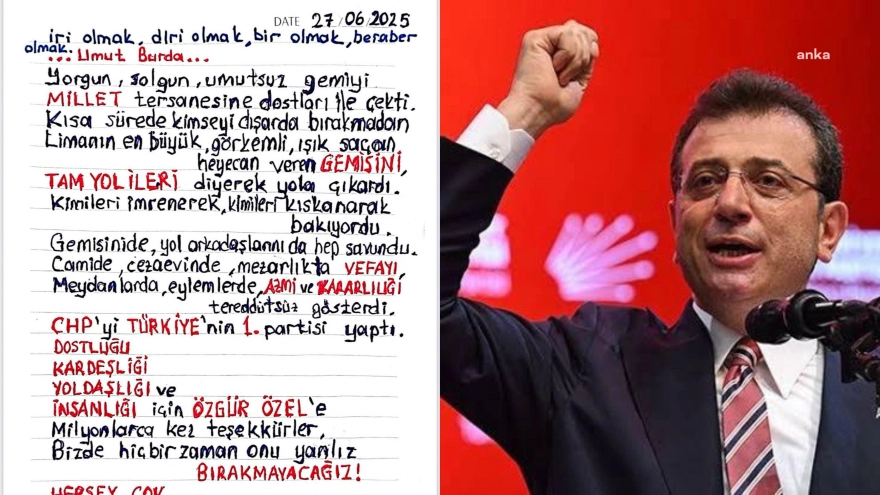 DATE 27/06/2025
iri olmak, diri olmak, bir olmak, beraber
olmak.
...Umut Burda...
Yorgun, solgun, umutsuz gemiyi
MİLLET tersanesine dostları ile çekti.
Kısa sürede kimseyi dışarda bırakmadan
Limanın en büyük, görkemli, ışık saçan
heyecan veren GEMİSİNİ,
TAM YOL İLERİ diyerek yola çıkardı.
Kimileri imrenerek, kimileri kıskanarak
bakıyordu.
Gemisinide, yol arkadaşlarını da hep savundu.
Camide, cezaevinde, mezarlıkta VEFAYI,
Meydanlarda, eylemlerde, AZMİ ve KARARLILIĞI
tereddütsüz gösterdi.
CHP'yi TÜRKİYE'nin 1. partisi yaptı.
DOSTLUĞU
KARDEŞLİĞİ
YOLDAŞLIĞI ve
İNSANLIĞI için ÖZGÜR ÖZEL'e
Milyonlarca kez teşekkürler,
Bizde hiçbir zaman onu yanlız
BIRAKMAYACAĞIZ!
HERŞEY ÇOK
anka